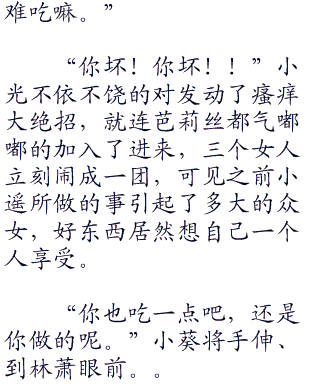 难吃嘛。”
“你坏！你坏！！”小
光不依不饶的对发动了瘙痒
大绝招，就连芭莉丝都气嘟
嘟的加入了进来，三个女人
立刻闹成一团，可见之前小
遥所做的事引起了多大的众
女，好东西居然想自己一个
人享受。
“你也吃一点吧，还是
你做的呢。”小葵将手伸、
到林萧眼前。。